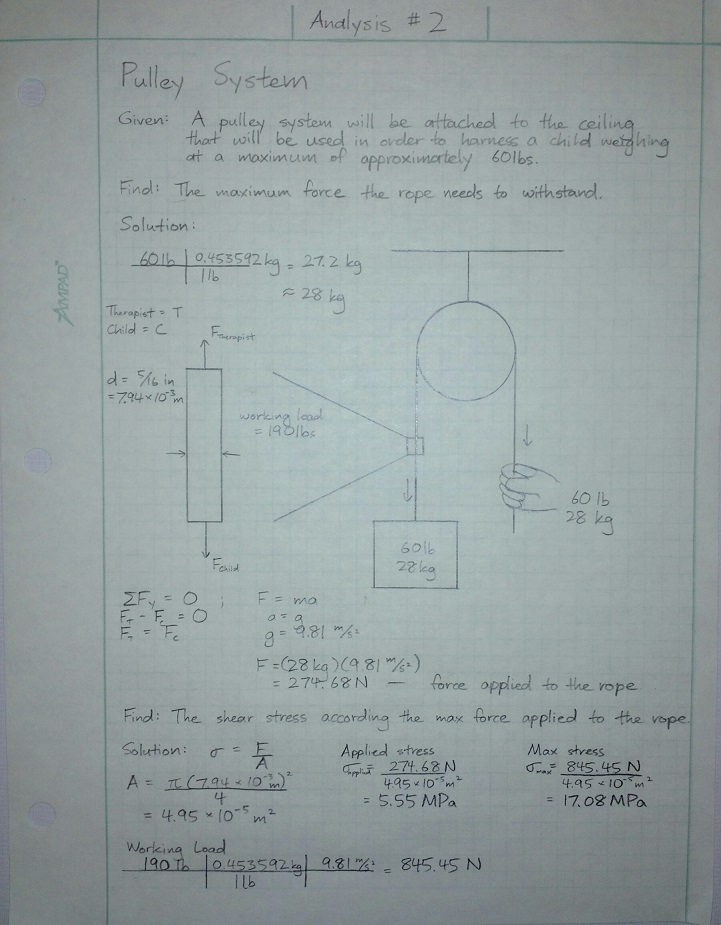 Analysis #2
Pulley System
Given: A pulley system will be attached to the ceiling
that will be used in order to harness a child weighing
at a maximum of approximately 60lbs.
Find: The maximum force the rope needs to withstand.
Solution:
60 lb | 0.453592 kg = 27.2 kg
1 lb
≈ 28 kg
AMPAD®
Therapist = T
Child = C
F Therapist
d = 5/16 in
= 7.94 × 10⁻³ m
working load
= 190 lbs
60 lb
28 kg
60 lb
28 kg
F child
ΣFy = 0 ; F = ma ;
F_T - F_C = 0 a = g
F_T = F_C g = 9.81 m/s²
F = (28 kg)(9.81 m/s²)
= 274.68 N — force applied to the rope
Find: The shear stress according the max force applied to the rope.
Solution: σ = F/A
A = π(7.94 × 10⁻³ m)²/4
= 4.95 × 10⁻⁵ m²
Applied stress
σ_applied = 274.68 N / 4.95 × 10⁻⁵ m²
= 5.55 MPa
Max stress
σ_max = 845.45 N / 4.95 × 10⁻⁵ m²
= 17.08 MPa
Working Load
190 lb | 0.453592 kg | 9.81 m/s² = 845.45 N
1 lb